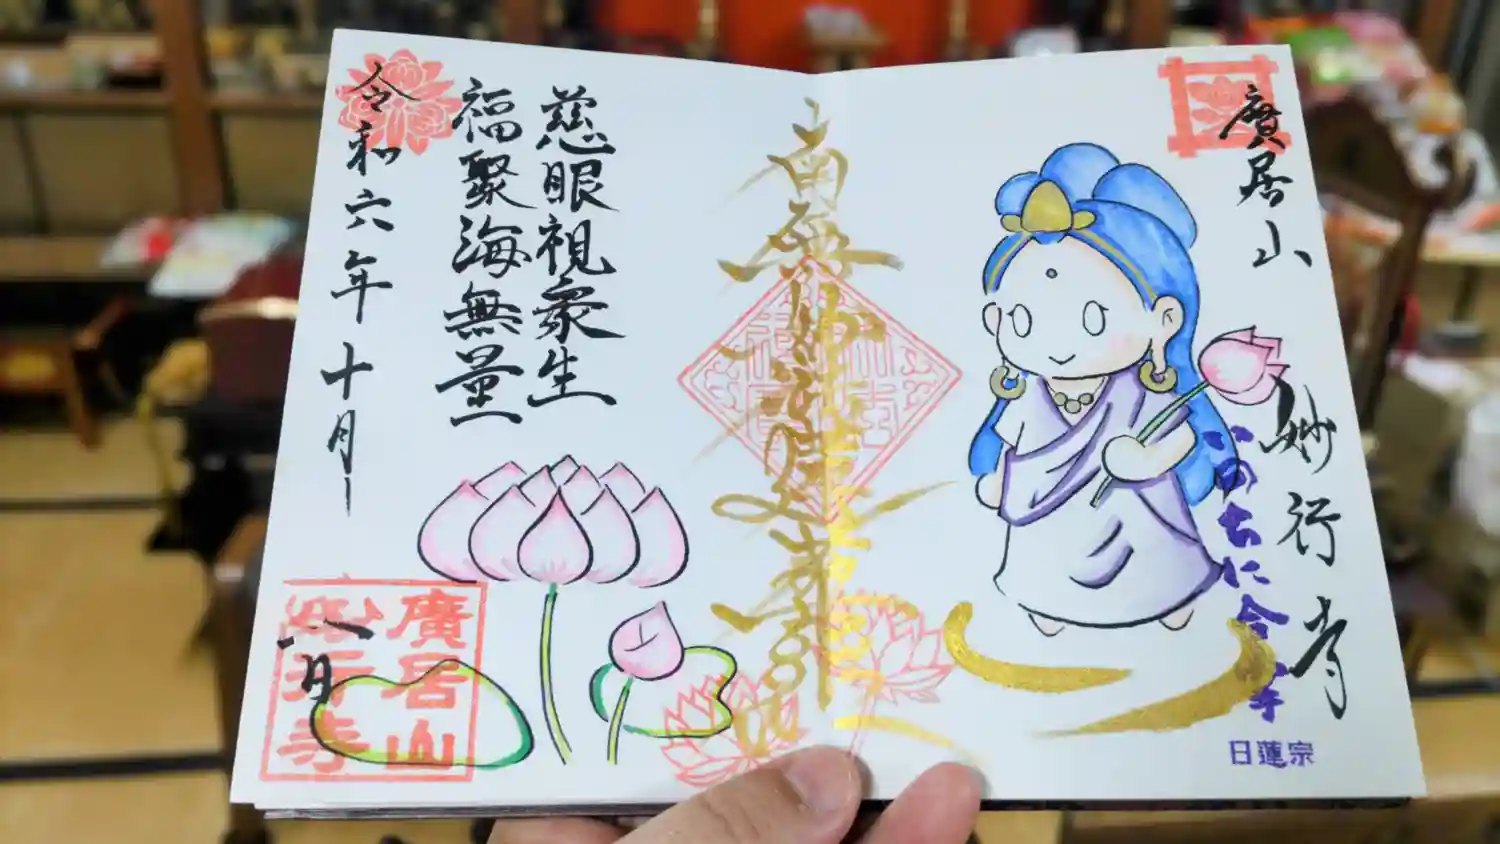 廣居山
妙行寺
いのちに合掌
日蓮宗
南無妙法蓮華経
慈眼視衆生
福聚海無量
令和六年十月
八日
廣居山
妙行寺